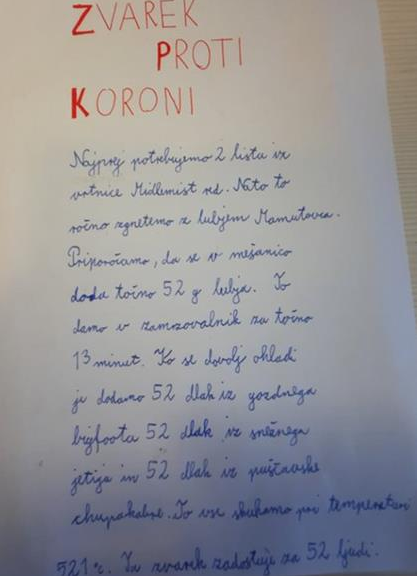 ZVAREK
PROTI
KORONI
Najprej potrebujemo 2 lista iz
vrtnice Midlemist red. Nato to
ročno zgnetemo z lubjem Mamutovca.
Priporočamo, da se v mešanico
doda točno 52 g lubja. To
damo v zamrzovalnik za točno
13 minut. Ko se dovolj ohladi
ji dodamo 52 dlak iz gozdnega
bigfoota 52 dlak iz snežnega
jetija in 52 dlak iz puščavske
chupakabre. To vse skuhamo pri temperaturi
521°c. Ta zvarek zadostuje za 52 ljudi.